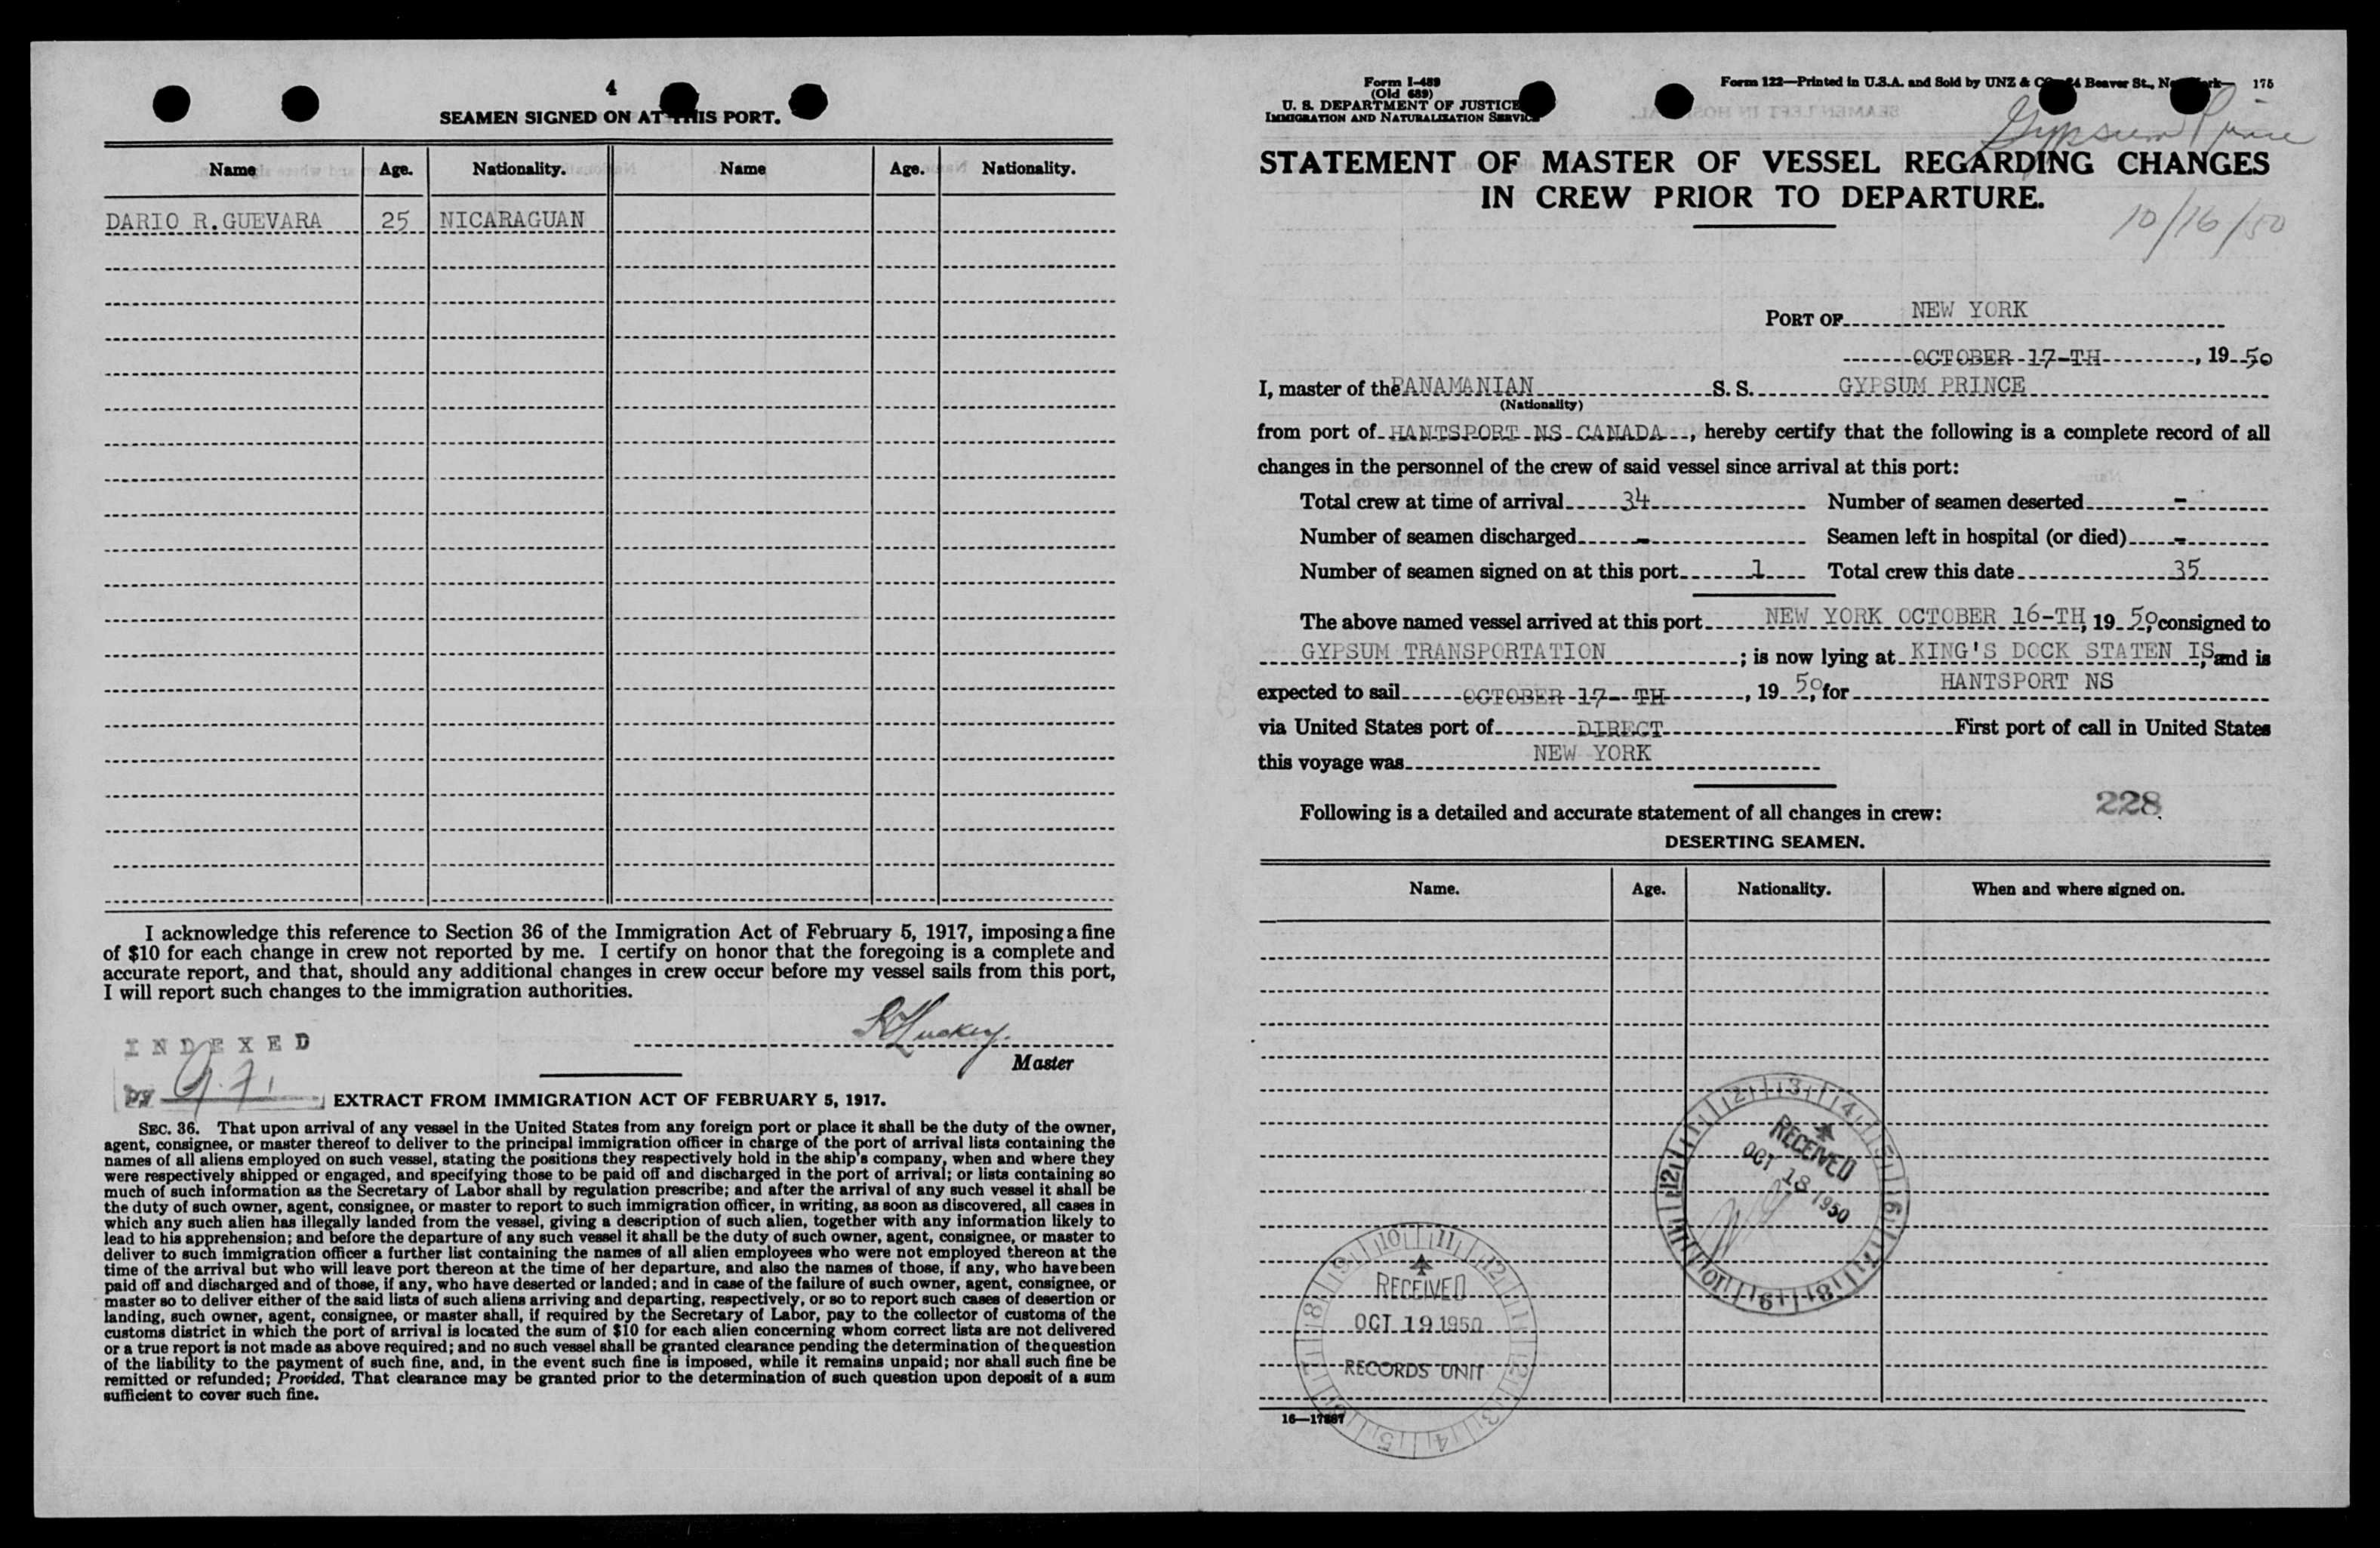 4
SEAMEN SIGNED ON AT THIS PORT.
Name Age. Nationality. Name Age. Nationality.
DARIO R.GUEVARA 25 NICARAGUAN
I acknowledge this reference to Section 36 of the Immigration Act of February 5, 1917, imposing a fine
of $10 for each change in crew not reported by me. I certify on honor that the foregoing is a complete and
accurate report, and that, should any additional changes in crew occur before my vessel sails from this port,
I will report such changes to the immigration authorities.
Master
INDEXED
BY
EXTRACT FROM IMMIGRATION ACT OF FEBRUARY 5, 1917.
SEC. 36. That upon arrival of any vessel in the United States from any foreign port or place it shall be the duty of the owner,
agent, consignee, or master thereof to deliver to the principal immigration officer in charge of the port of arrival lists containing the
names of all aliens employed on such vessel, stating the positions they respectively hold in the ship's company, when and where they
were respectively shipped or engaged, and specifying those to be paid off and discharged in the port of arrival; or lists containing so
much of such information as the Secretary of Labor shall by regulation prescribe; and after the arrival of any such vessel it shall be
the duty of such owner, agent, consignee, or master to report to such immigration officer, in writing, as soon as discovered, all cases in
which any such alien has illegally landed from the vessel, giving a description of such alien, together with any information likely to
lead to his apprehension; and before the departure of any such vessel it shall be the duty of such owner, agent, consignee, or master to
deliver to such immigration officer a further list containing the names of all alien employees who were not employed thereon at the
time of the arrival but who will leave port thereon at the time of her departure, and also the names of those, if any, who have been
paid off and discharged and of those, if any, who have deserted or landed; and in case of the failure of such owner, agent, consignee, or
master so to deliver either of the said lists of such aliens arriving and departing, respectively, or so to report such cases of desertion or
landing, such owner, agent, consignee, or master shall, if required by the Secretary of Labor, pay to the collector of customs of the
customs district in which the port of arrival is located the sum of $10 for each alien concerning whom correct lists are not delivered
or a true report is not made as above required; and no such vessel shall be granted clearance pending the determination of the question
of the liability to the payment of such fine, and, in the event such fine is imposed, while it remains unpaid; nor shall such fine be
remitted or refunded; Provided, That clearance may be granted prior to the determination of such question upon deposit of a sum
sufficient to cover such fine.
Form I-489
(Old 689)
U. S. DEPARTMENT OF JUSTICE
IMMIGRATION AND NATURALIZATION SERVICE
Form 122—Printed in U.S.A. and Sold by UNZ & CO., 24 Beaver St., New York— 175
Gypsum Prince
STATEMENT OF MASTER OF VESSEL REGARDING CHANGES
IN CREW PRIOR TO DEPARTURE.
10/16/50
PORT OF NEW YORK
OCTOBER 17-TH, 19 50
I, master of the PANAMANIAN S. S. GYPSUM PRINCE
(Nationality)
from port of HANTSPORT NS CANADA, hereby certify that the following is a complete record of all
changes in the personnel of the crew of said vessel since arrival at this port:
Total crew at time of arrival 34 Number of seamen deserted -
Number of seamen discharged - Seamen left in hospital (or died) -
Number of seamen signed on at this port 1 Total crew this date 35
The above named vessel arrived at this port NEW YORK OCTOBER 16-TH, 19 50, consigned to
GYPSUM TRANSPORTATION; is now lying at KING'S DOCK STATEN IS, and is
expected to sail OCTOBER 17- TH, 19 50, for HANTSPORT NS
via United States port of DIRECT First port of call in United States
this voyage was NEW YORK
Following is a detailed and accurate statement of all changes in crew: 228
DESERTING SEAMEN.
Name. Age. Nationality. When and where signed on.
RECEIVED
OCT 18 1950
RECEIVED
OCT 19 1950
RECORDS UNIT
16—17887